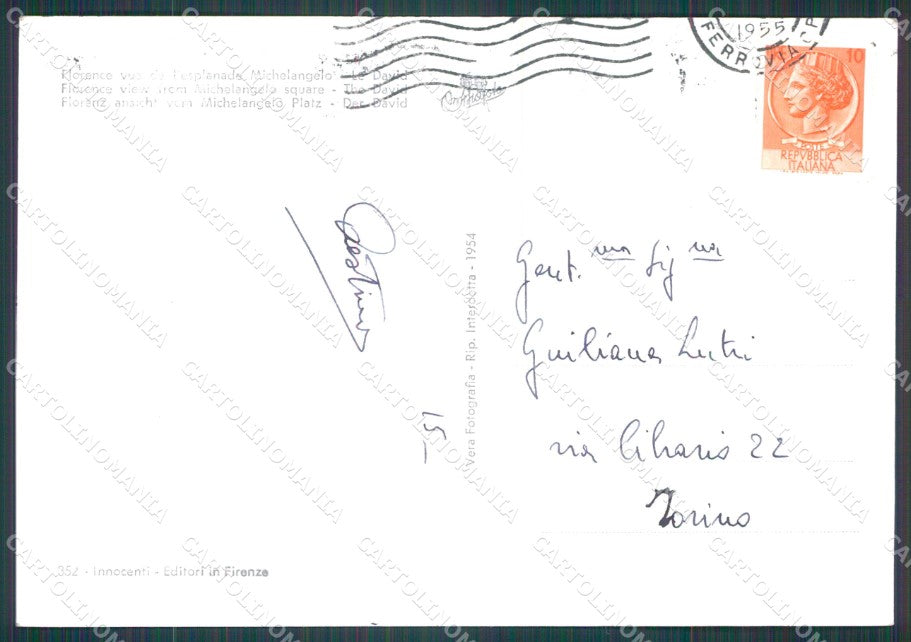 Florence vue de l'esplanade Michelangelo - Le David
Florence view from Michelangelo square - The David
Florenz ansicht vom Michelangelo Platz - Der David
1955
FERROVIA C.P
10
POSTE
REPVBBLICA
ITALIANA
Vera Fotografia - Rip. Interdetta - 1954
Gent.ma Sig.na
Giuliana
via Cibrario 22
Torino
15-
352 - Innocenti - Editori in Firenze
CARTOLINOMANIA